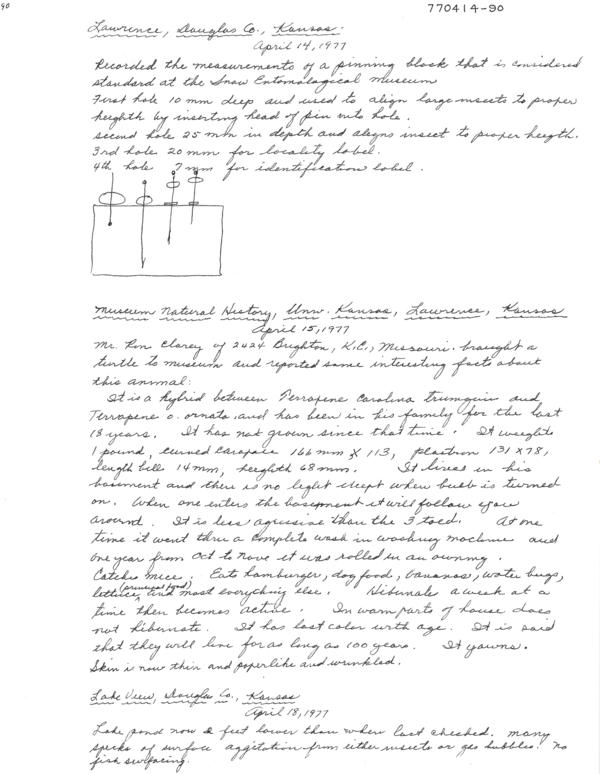 90
770414-90
Lawrence, Douglas Co., Kansas.
April 14, 1977
Recorded the measurements of a pinning block that is considered
standard at the Snow Entomological Museum
First hole 10 mm deep and used to align large insects to proper
heighth by inserting head of pin into hole.
Second hole 25 mm in depth and aligns insect to proper heigth.
3rd hole 20 mm for locality label.
4th hole 7 mm for identification label.
Museum Natural History, Univ. Kansas, Lawrence, Kansas
April 15, 1977
Mr. Ron Clarey of 2424 Brighton, K.C., Missouri. brought a
turtle to museum and reported some interesting facts about
this animal:
It is a hybrid between Terrapene Carolina triunguis and
Terrapene o. ornata and has been in his family for the last
18 years. It has not grown since that time. It weights
1 pound, curved carapace 166 mm X 113, plastron 131 X 78,
length bill 14 mm, heighth 68 mm. It lives in his
basement and there is no light except when bulb is turned
on. When one enters the basement it will follow you
around. It is less agressive than the 3 toed. At one
time it went thru a complete wash in washing machine and
one year from Oct to Nove it was rolled in an awning.
Catches mice. Eats hamburger, dog food, bananas, water bugs,
lettuce (principal food) and most everything else. Hibernates a week at a
time then becomes active. In warm parts of house does
not hibernate. It has lost color with age. It is said
that they will live for as long as 100 years. It yawns.
Skin is now thin and paperlike and wrinkled.
Lake View, Douglas Co., Kansas
April 18, 1977
Lake pond now 2 feet lower than when last checked. Many
specks of surface aggitation from either insects or gas bubbles. No
fish surfacing.